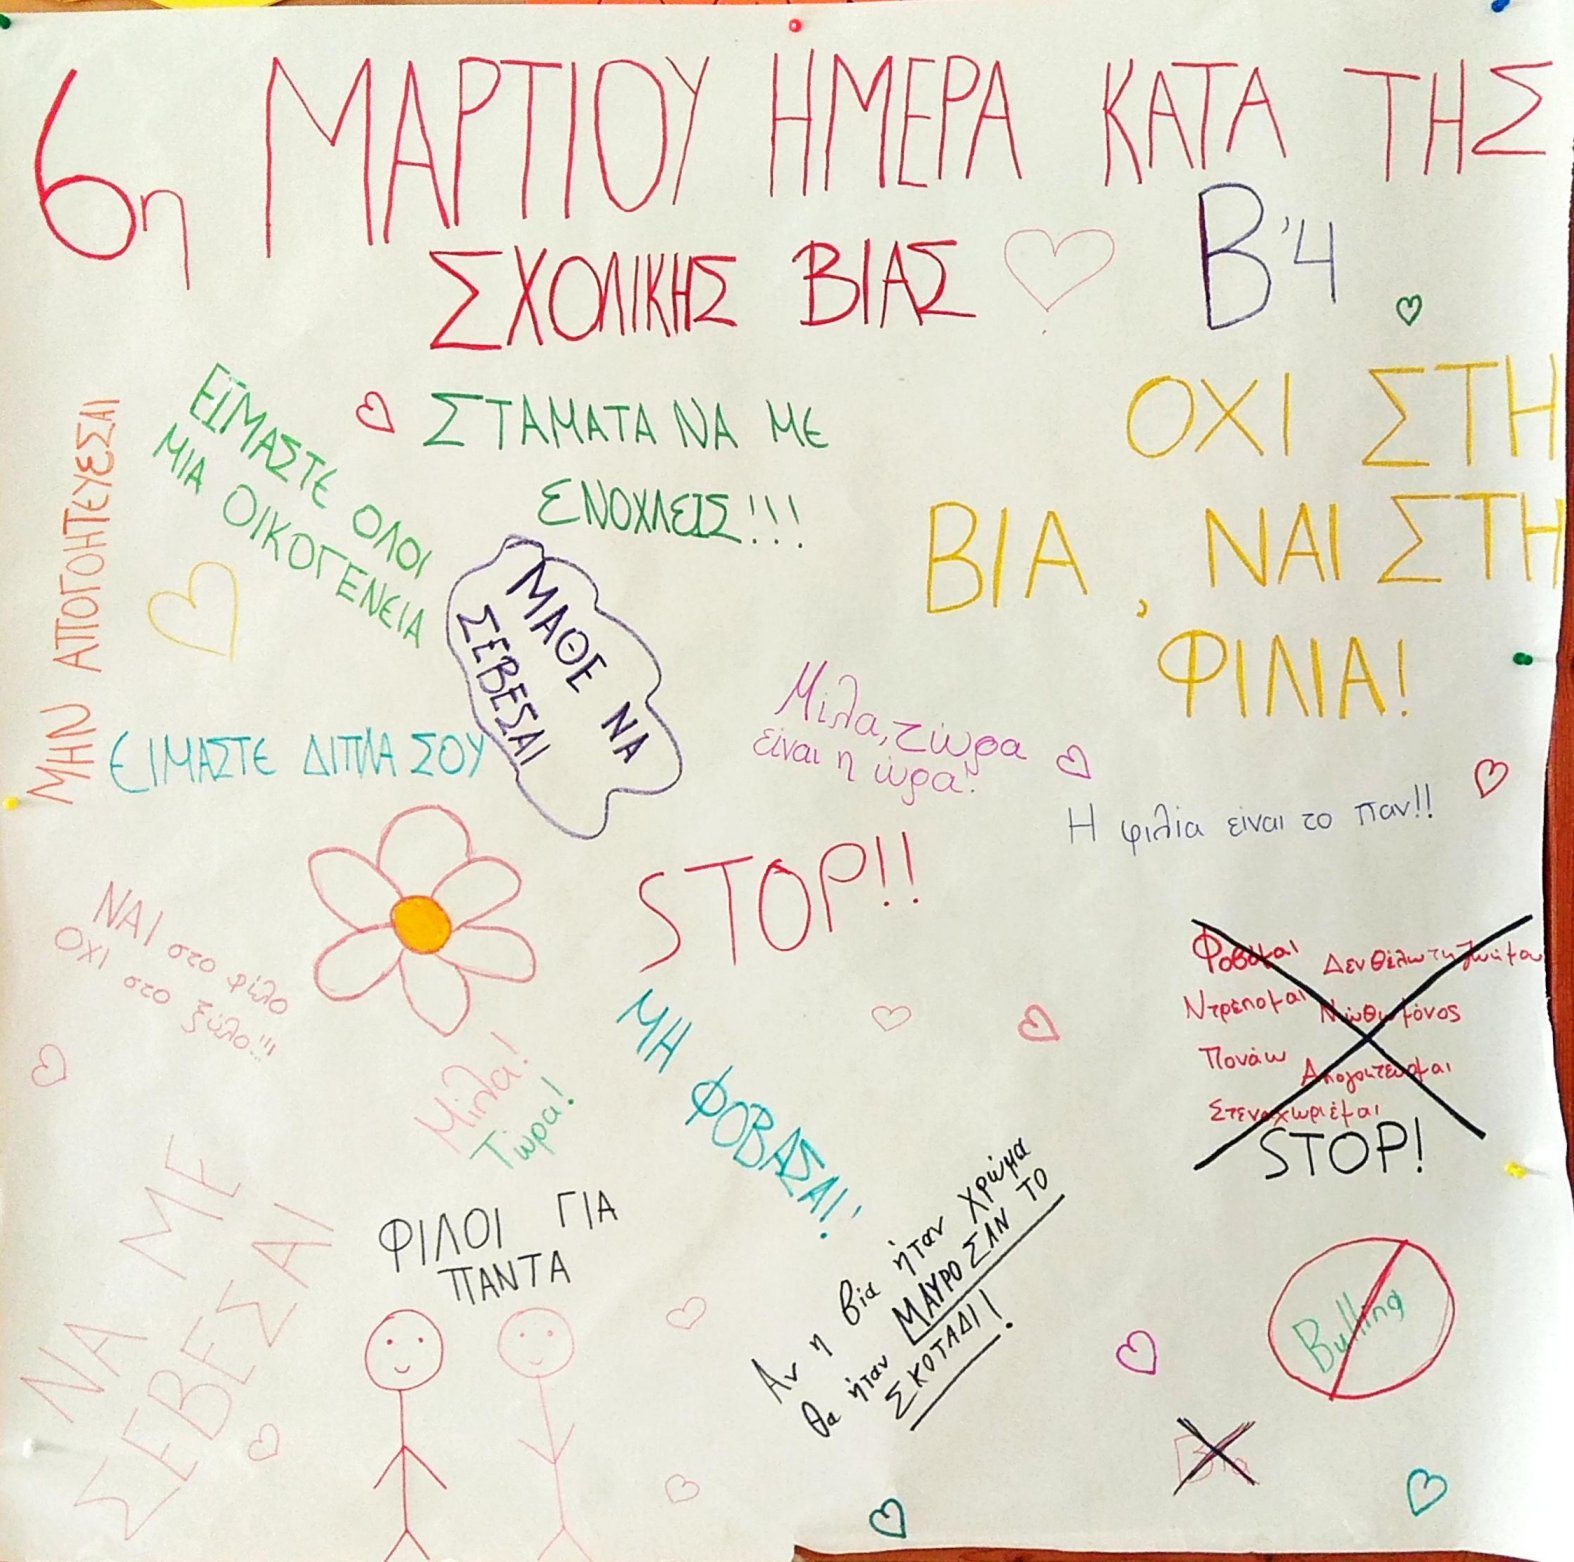 6η ΜΑΡΤΙΟΥ ΗΜΕΡΑ ΚΑΤΑ ΤΗΣ
ΣΧΟΛΙΚΗΣ ΒΙΑΣ
Β'4
ΜΗΝ ΑΠΟΓΟΗΤΕΥΕΣΑΙ
ΕΙΜΑΣΤΕ ΟΛΟΙ
ΜΙΑ ΟΙΚΟΓΕΝΕΙΑ
ΣΤΑΜΑΤΑ ΝΑ ΜΕ
ΕΝΟΧΛΕΙΣ!!!
ΟΧΙ ΣΤΗ
ΒΙΑ, ΝΑΙ ΣΤΗ
ΦΙΛΙΑ!
ΜΑΘΕ ΝΑ
ΣΕΒΕΣΑΙ
ΕΙΜΑΣΤΕ ΔΙΠΛΑ ΣΟΥ
Μίλα, τώρα
είναι η ώρα!
Η φιλία είναι το παν!!
STOP!!
ΝΑΙ στο φίλο
ΟΧΙ στο ξύλο!!!
Μίλα!
Τώρα!
ΜΗ ΦΟΒΑΣΑΙ!
Φοβάμαι Δεν θέλω τη ζωή μου
Ντρέπομαι Νιώθω μόνος
Πονάω Απογοητεύομαι
Στεναχωριέμαι
STOP!
ΝΑ ΜΕ
ΣΕΒΕΣΑΙ
ΦΙΛΟΙ ΓΙΑ
ΠΑΝΤΑ
Αν η βία ήταν χρώμα
θα ήταν ΜΑΥΡΟ ΣΑΝ ΤΟ
ΣΚΟΤΑΔΙ!
Bulling
Βία